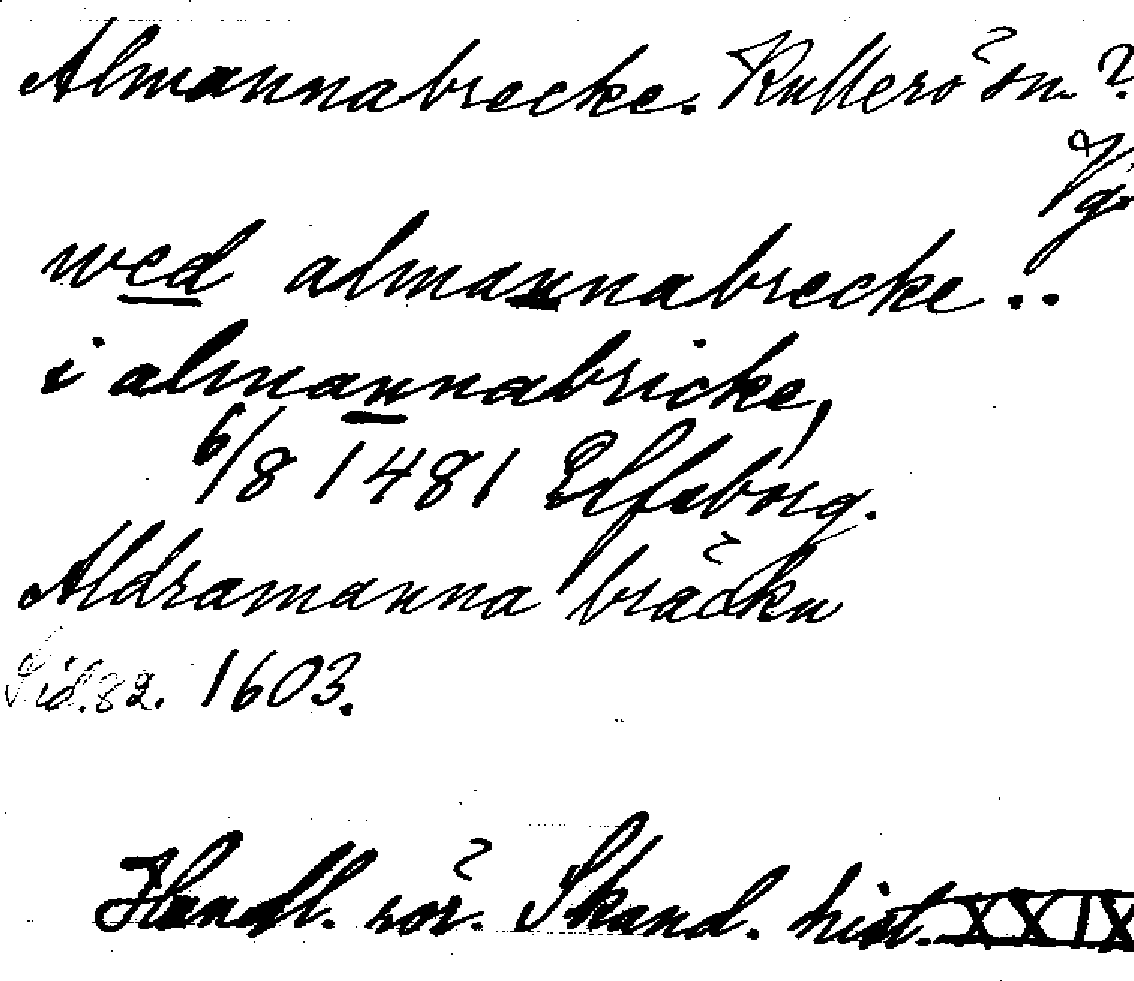 Almannabrecke. Kullerö sn. ?
Vg.
wed almannabrecke..
i almannabricke,
6/8 1481 Elfsborg.
Aldramanna bräcku
Sid. 82. 1603.
Handl. rör. Skand. hist. XXIX